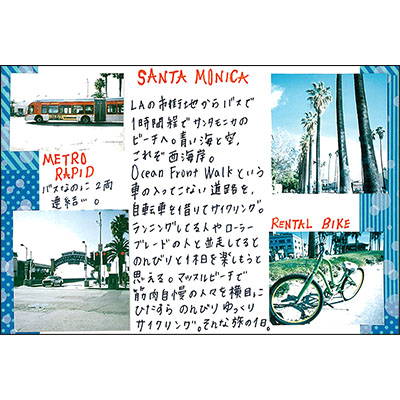 SANTA MONICA
LAの市街地からバスで
1時間程でサンタモニカの
ビーチへ。青い海と空、
これぞ西海岸。
Ocean Front Walkという
車の入ってこない道路を、
自転車を借りてサイクリング。
ランニングしてる人やローラー
ブレードの人と並走してると
のんびりと1本日を楽しもうと
思える。マッスルビーチで
筋肉自慢の人々を横目に
ひたすら のんびり ゆっくり
サイクリング。そんな旅の1日。
METRO
RAPID
バスなのに2両
連結…。
RENTAL BIKE